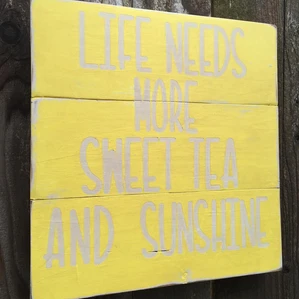 LIFE NEEDS
MORE
SWEET TEA
AND SUNSHINE